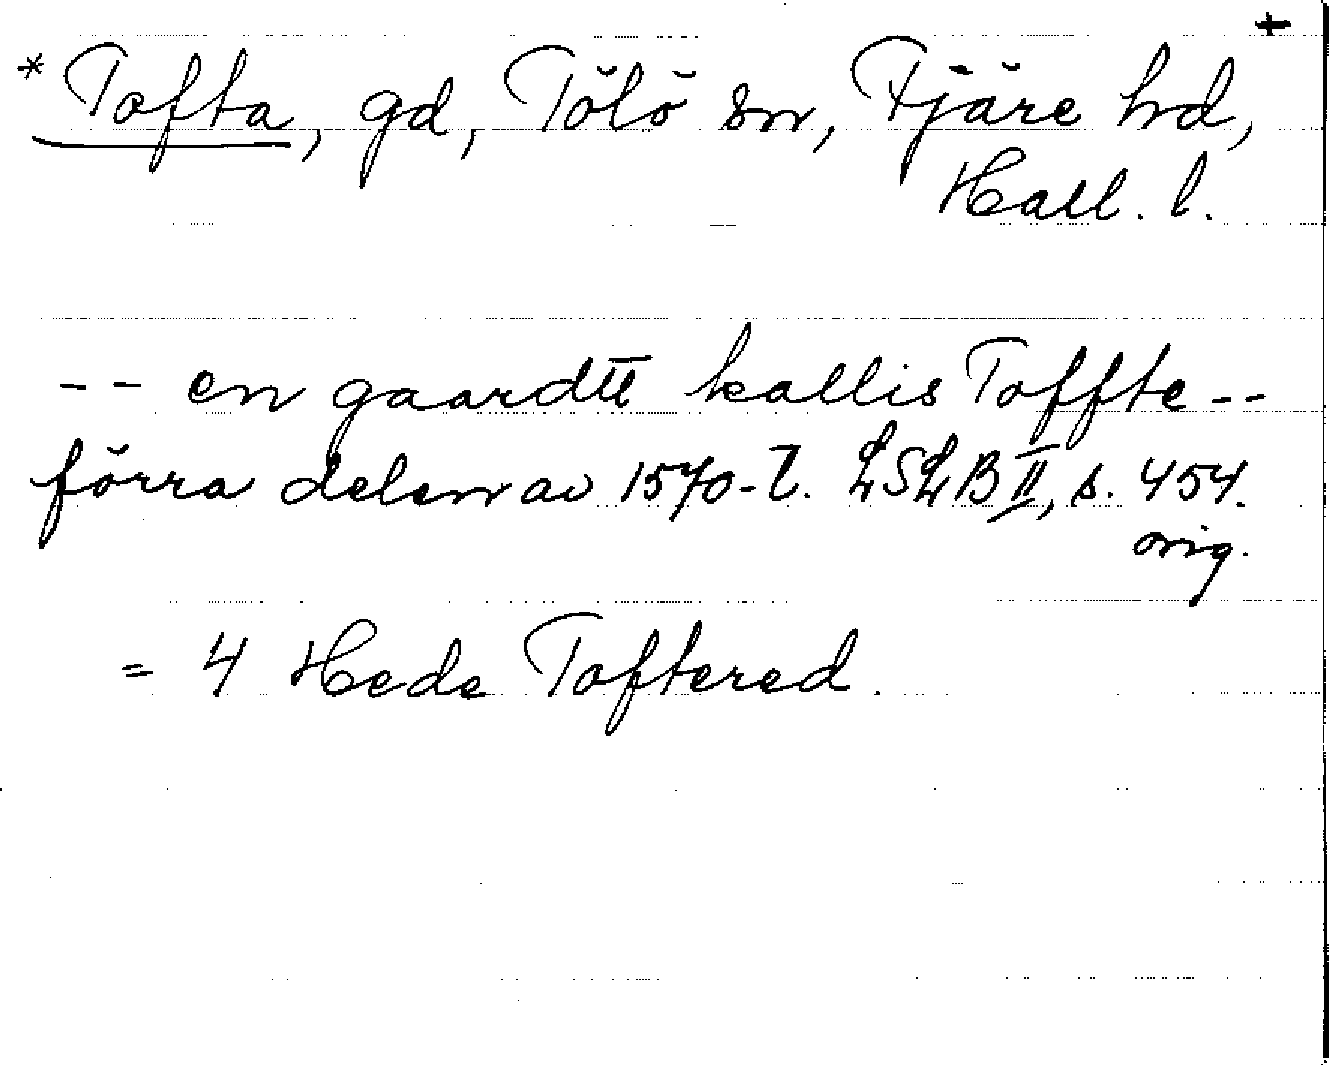 +
* Tofta, gd, Tölö sn, Fjäre hd,
Hall. l.
-- en gaardtt kallis Toffte --
förra delen av 1570-t. LSLB II, s. 454.
orig.
= 4 Hede Toftered.